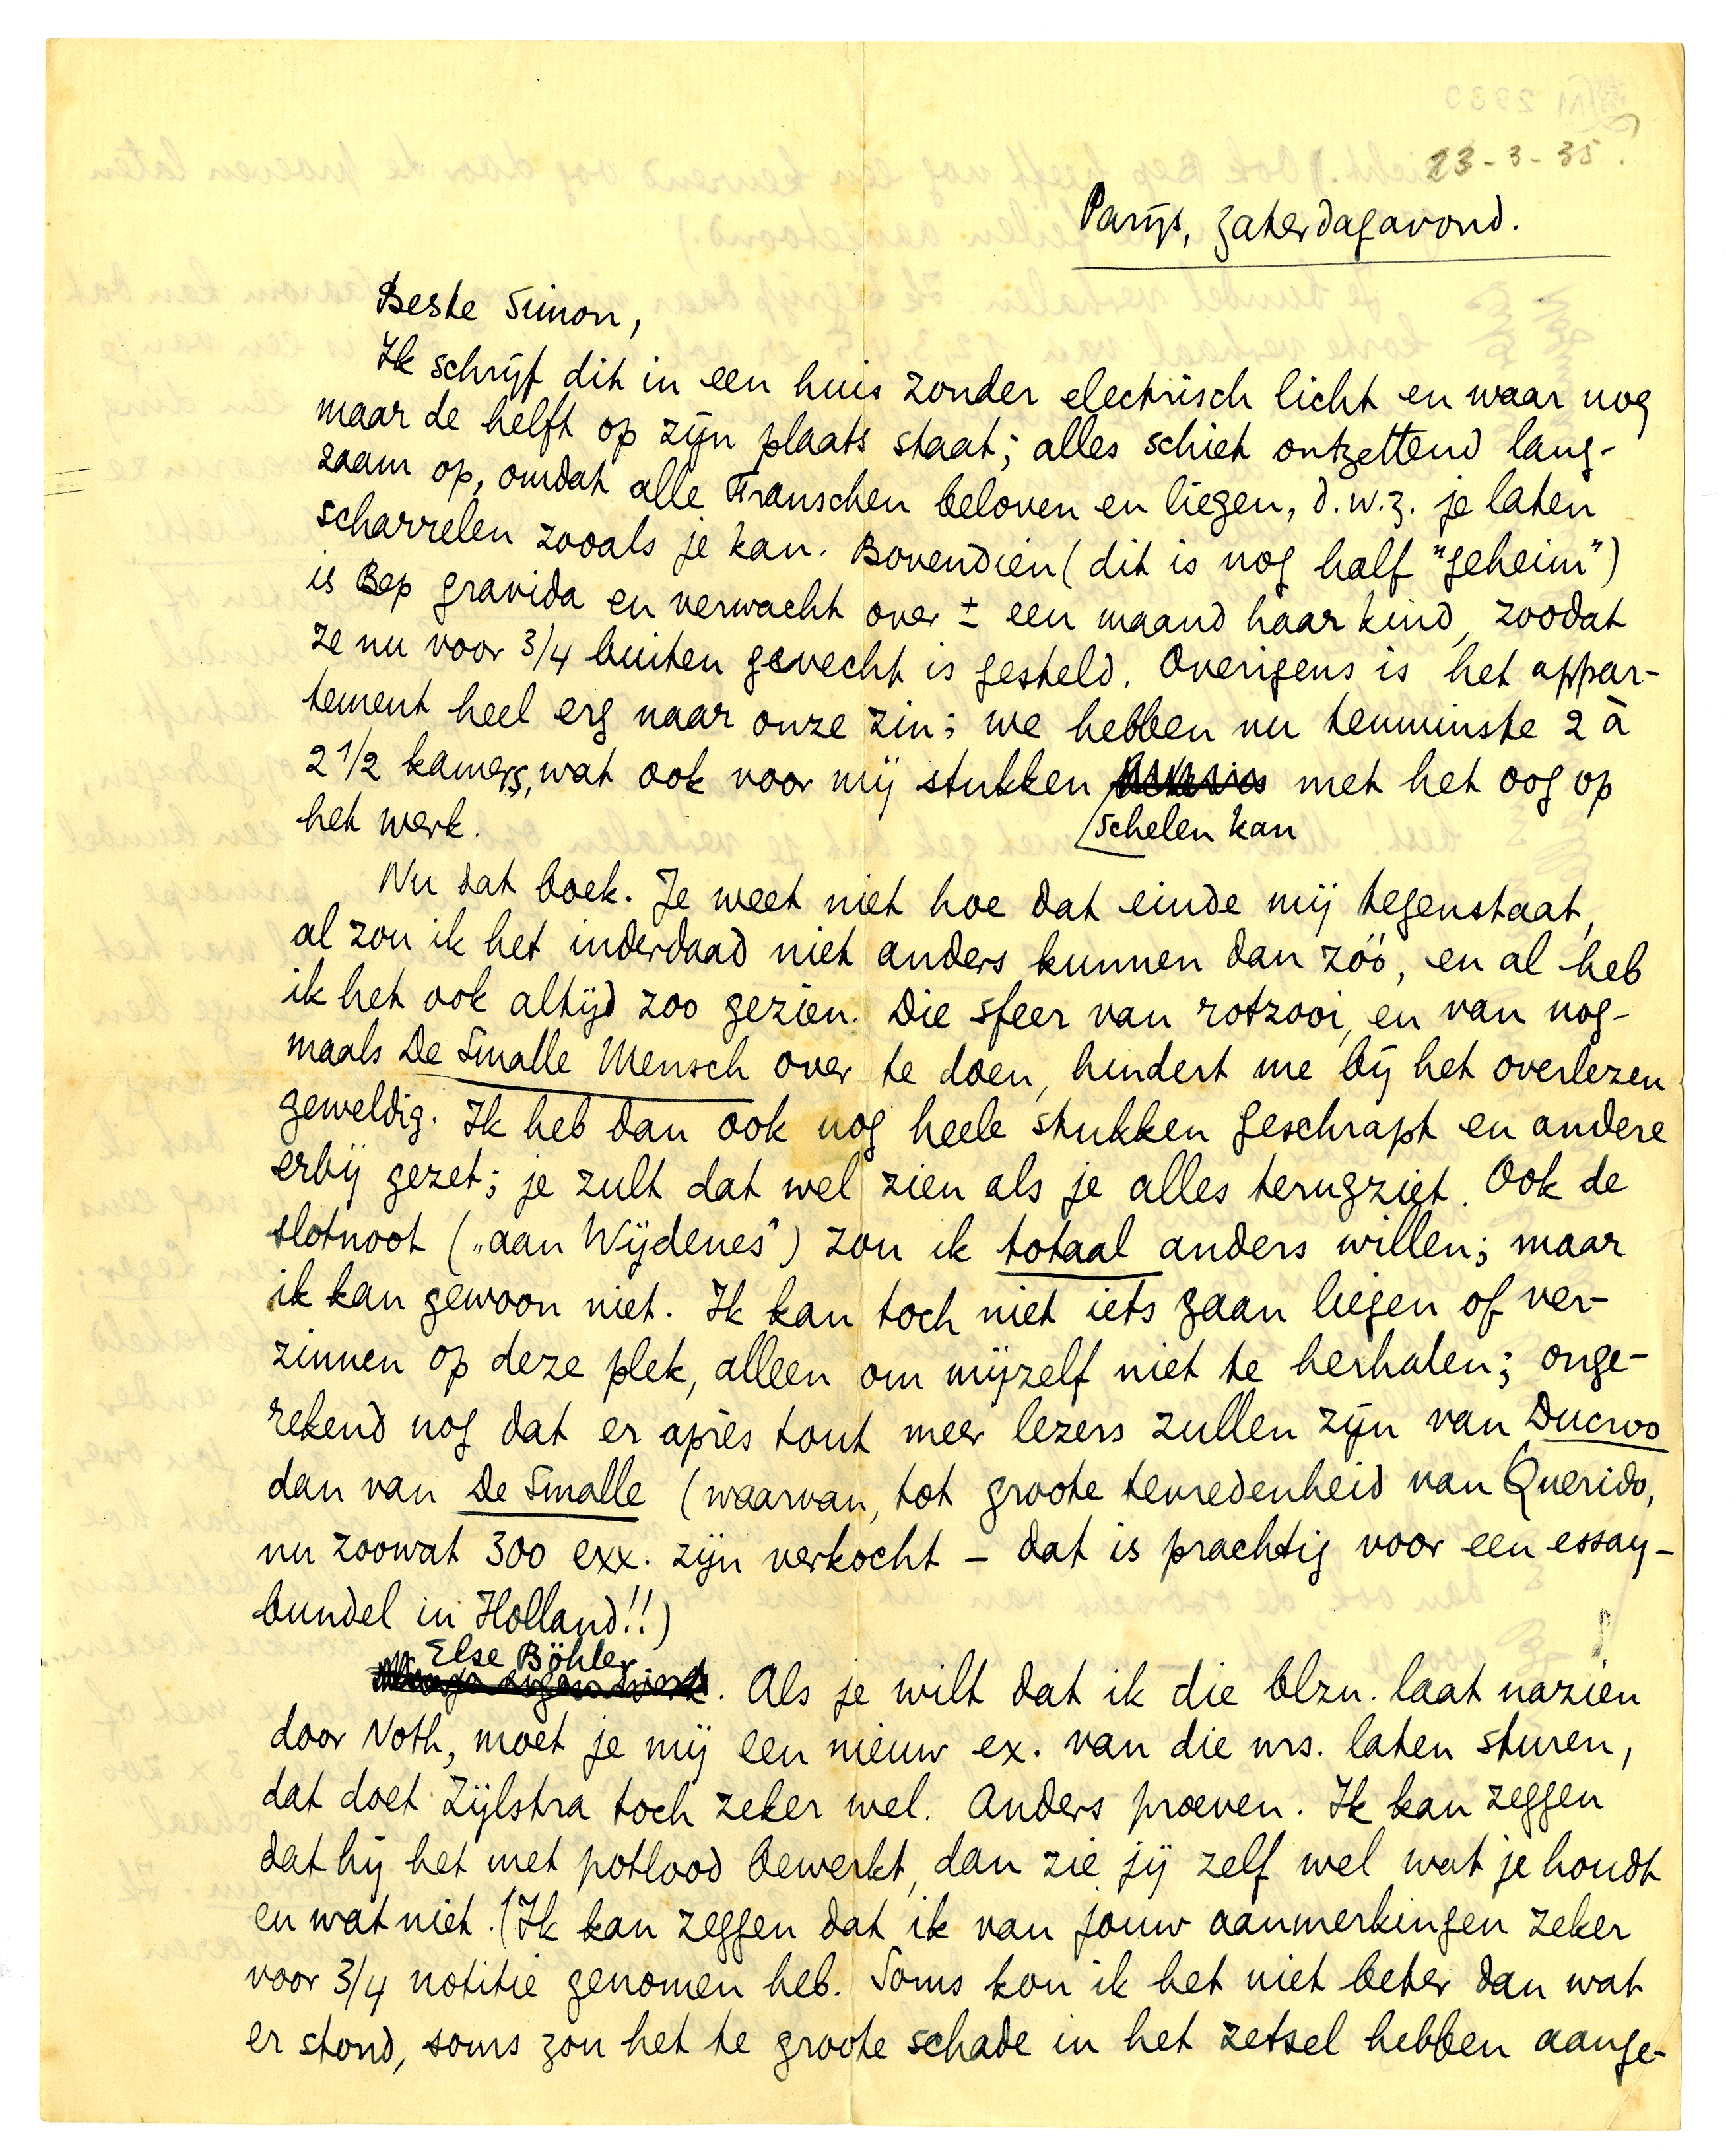 23-3-35.
Parijs, Zaterdagavond.
Beste Simon,
Ik schrijf dit in een huis zonder electrisch licht en waar nog
maar de helft op zijn plaats staat; alles schiet ontzettend lang-
zaam op, omdat alle Franschen beloven en liegen, d.w.z. je laten
scharrelen zooals je kan. Bovendien (dit is nog half "geheim")
is Bep gravida en verwacht over ± een maand haar kind, zoodat
ze nu voor 3/4 buiten gevecht is gesteld. Overigens is het appar-
tement heel erg naar onze zin; we hebben nu tenminste 2 à
2 1/2 kamers, wat ook voor mij stukken met het oog op
schelen kan
het werk.
Nu dat boek. Je weet niet hoe dat einde mij tegenstaat,
al zou ik het inderdaad niet anders kunnen dan zóó, en al heb
ik het ook altijd zoo gezien. Die sfeer van rotzooi, en van nog-
maals De Smalle Mensch over te doen, hindert me bij het overlezen
geweldig. Ik heb dan ook nog heele stukken geschrapt en andere
erbij gezet; je zult dat wel zien als je alles terugziet. Ook de
slotnoot („aan Wijdenes") zou ik totaal anders willen; maar
ik kan gewoon niet. Ik kan toch niet iets gaan liegen of ver-
zinnen op deze plek, alleen om mijzelf niet te herhalen; onge-
rekend nog dat er après tout meer lezers zullen zijn van Ducroo
dan van De Smalle (waarvan, tot groote tevredenheid van Querido,
nu zoowat 300 exx. zijn verkocht – dat is prachtig voor een essay-
bundel in Holland!!)
Else Böhler
. Als je wilt dat ik die blzn. laat nazien
door Noth, moet je mij een nieuw ex. van die nrs. laten sturen,
dat doet Zijlstra toch zeker wel. Anders proeven. Ik kan zeggen
dat hij het met potlood bewerkt, dan zie jij zelf wel wat je houdt
en wat niet. (Ik kan zeggen dat ik van jouw aanmerkingen zeker
voor 3/4 notitie genomen heb. Soms kon ik het niet beter dan wat
er stond, soms zou het te groote schade in het zetsel hebben aange-